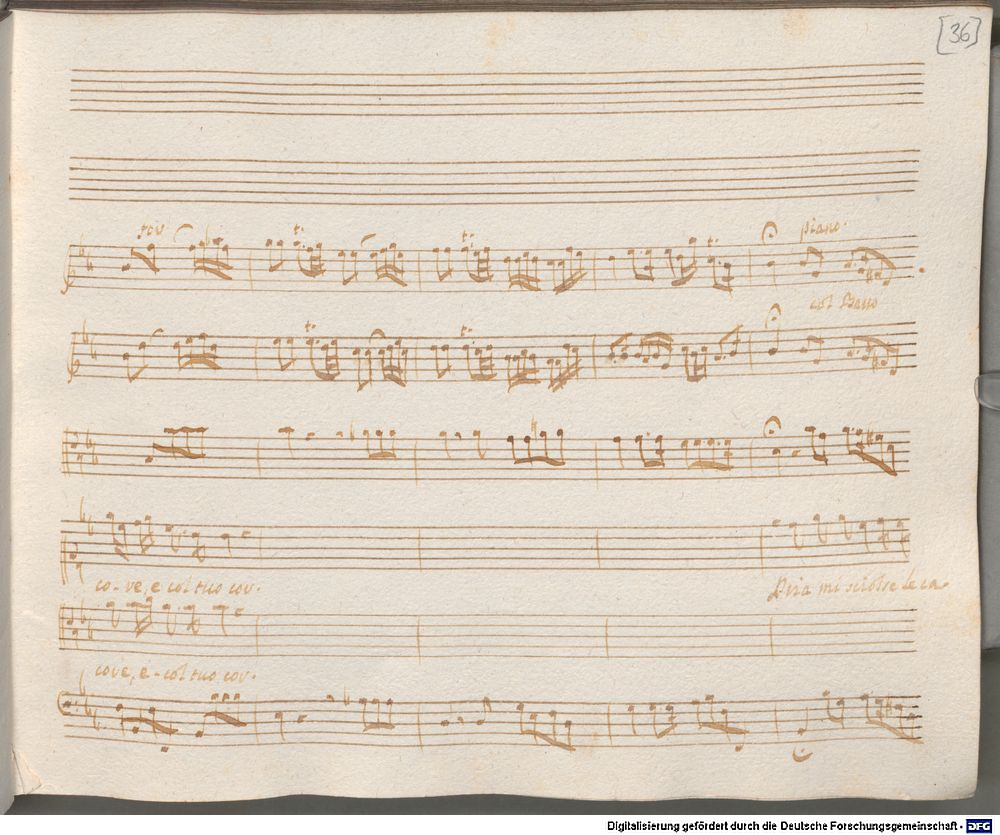 [36]
for
piano.
col Basso
co-re, e col tuo cor.
Pria mi sciolse le ca-
core, e-col tuo cor.
Digitalisierung gefördert durch die Deutsche Forschungsgemeinschaft - DFG